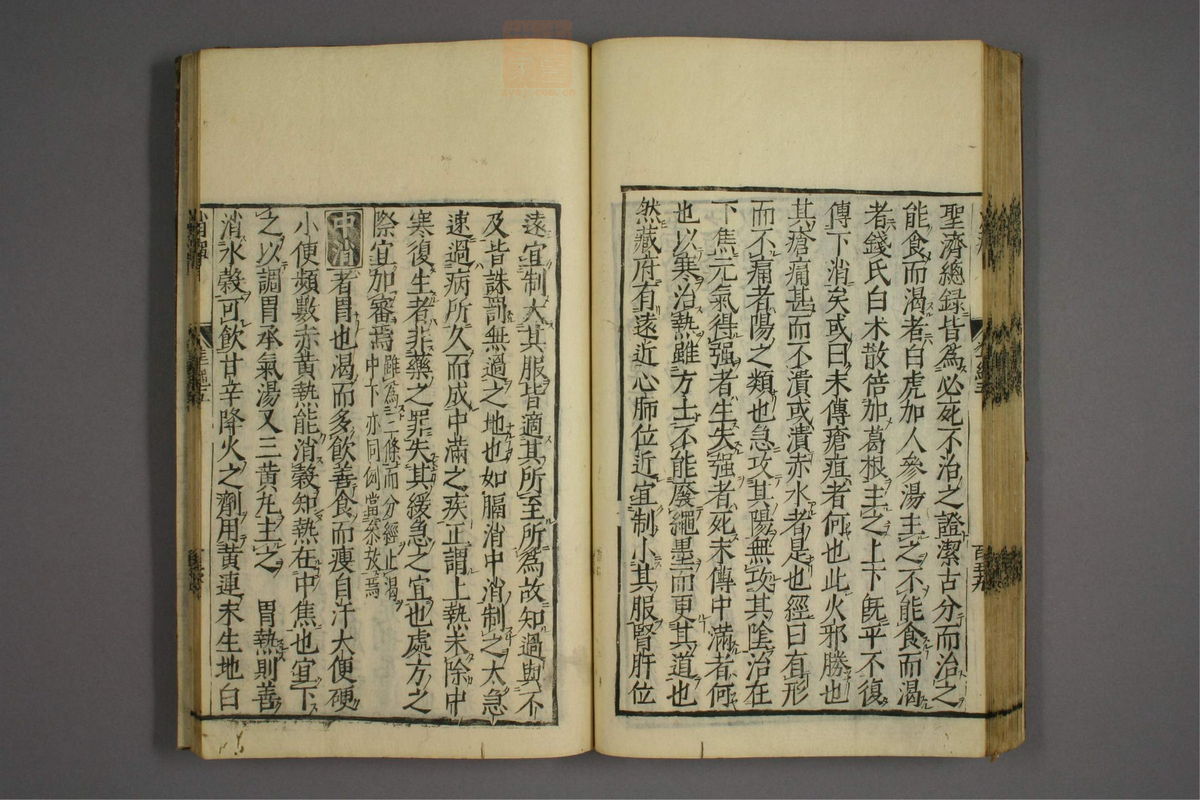 聖濟總録皆為必死不治之證潔古分而治之
能食而渴者白虎加人參湯主之不能食而渴
者錢氏白术散倍加葛根主之上下既平不復
傳下消矣或曰未傳瘡疽者何也此火邪勝也
其瘡痛甚而不潰或潰赤水者是也經曰有形
而不痛者陽之類也急攻其陽無攻其陰治在
下焦元氣得强者生失强者死末傳中滿者何
也以寒治熱雖方士不能廢繩墨而更其道也
然藏府有遠近心肺位近宜制小其服腎肝位
遠宜制大其服皆適其所至所為故知過與不
及皆誅罰無過之地也如膈消中消制之太急
速過病所久而成中滿之疾正謂上熱未除中
寒復生者非藥之罪失其緩急之宜也處方之
際宜加審焉雖為三條而分經止渴中下亦同例當參放焉
中消者胃也渴而多飲善食而瘦自汗大便硬
小便頻數赤黃熱能消穀知熱在中焦也宜下
之以調胃承氣湯又三黃丸主之 胃熱則善
消水穀可飲甘辛降火之劑用黃連末生地白